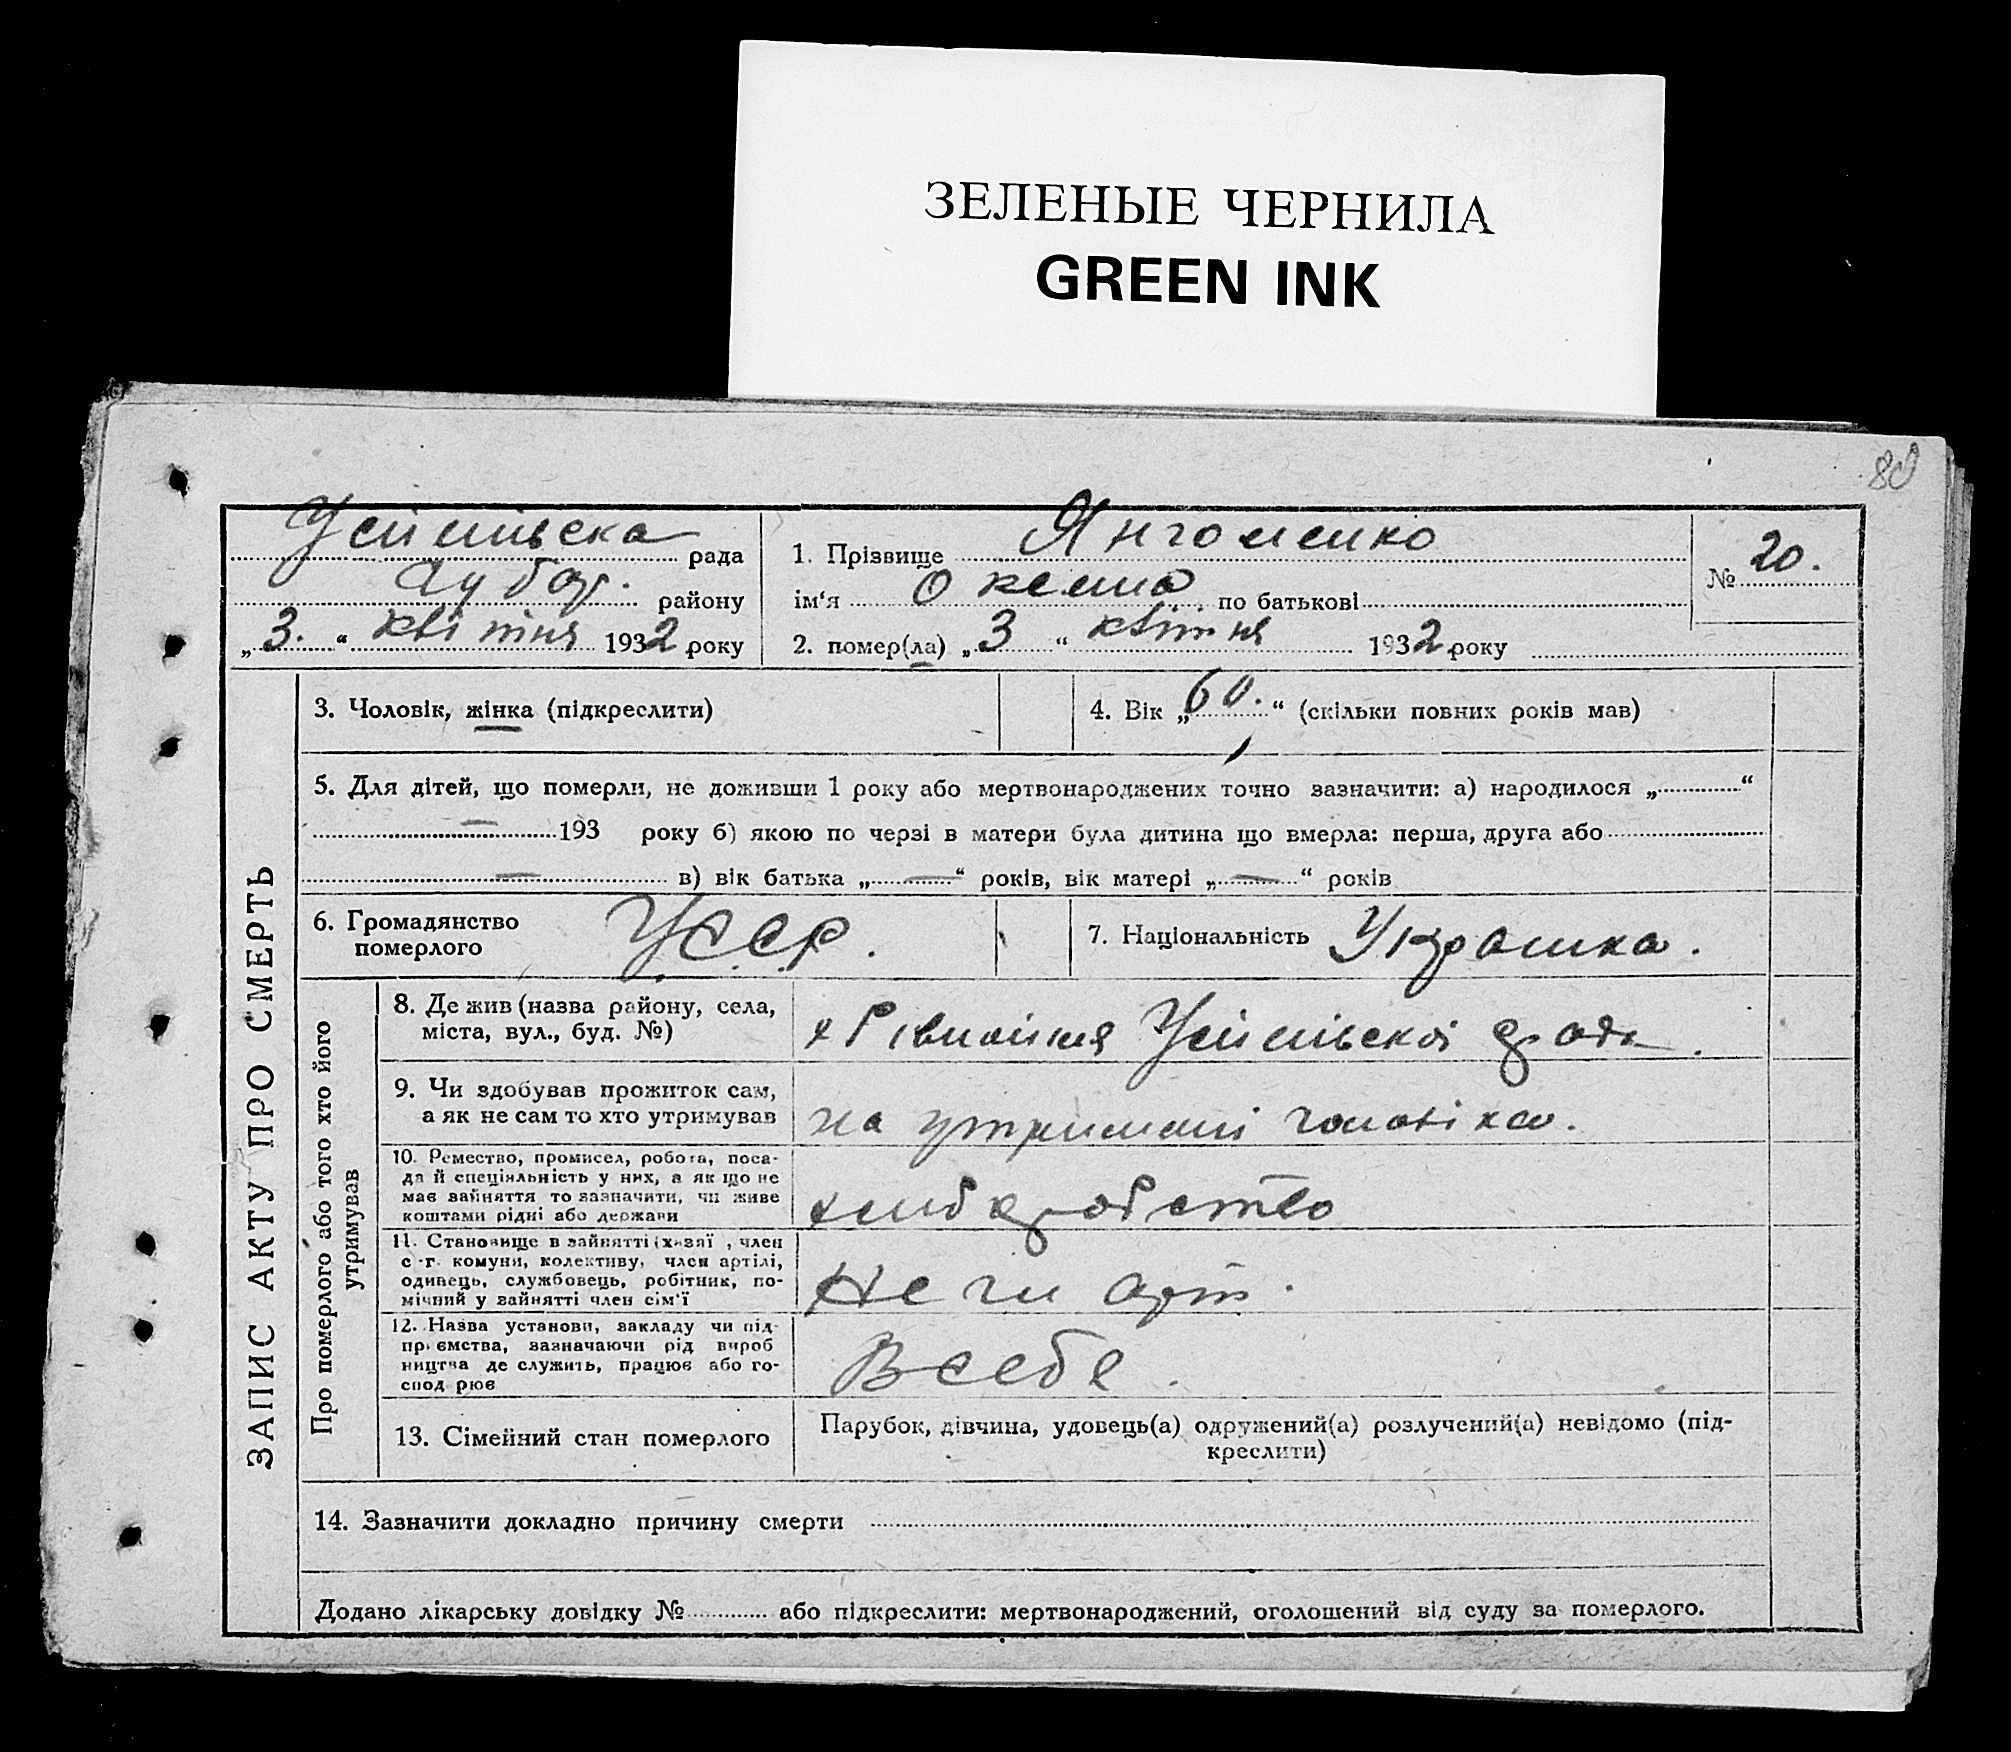 ЗЕЛЕНЫЕ ЧЕРНИЛА
GREEN INK
80
рада
району
„3.“ квітня 1932 року
1. Прізвище Янгоменко
ім‘я по батькові
2. помер(ла) „3“ квітня 1932 року
№ 20.
ЗАПИС АКТУ ПРО СМЕРТЬ
3. Чоловік, жінка (підкреслити)
4. Вік „60.“ (скільки повних років мав)
5. Для дітей, що померли, не доживши 1 року або мертвонароджених точно зазначити: а) народилося „ “
— 193 року б) якою по черзі в матери була дитина що вмерла: перша, друга або
— в) вік батька „—“ років, вік матері „—“ років
6. Громадянство
померлого
УССР.
7. Національність Українка.
Про померлого або того хто його
утримував
8. Де жив (назва району, села,
міста, вул., буд. №)
х Рівнопілля ради.
9. Чи здобував прожиток сам,
а як не сам то хто утримував
на утриманні чоловіка.
10. Ремество, промисел, робота, поса-
да й спеціяльність у них, а як що не
має зайняття то зазначити, чи живе
коштами рідні або держави
хліборобство
11. Становище в зайнятті (хазяї , член
с-г. комуни, колективу, член артілі,
одинець, службовець, робітник, по-
мічний у зайнятті член сім‘ї
Не чл арт.
12. Назва установи, закладу чи під-
приємства, зазначаючи рід вироб
ництва де служить, працює або го-
спод рює
В себе.
13. Сімейний стан померлого
Парубок, дівчина, удовець(а) одружений(а) розлучений(а) невідомо (під-
креслити)
14. Зазначити докладно причину смерти
Додано лікарську довідку № або підкреслити: мертвонароджений, оголошений від суду за померлого.